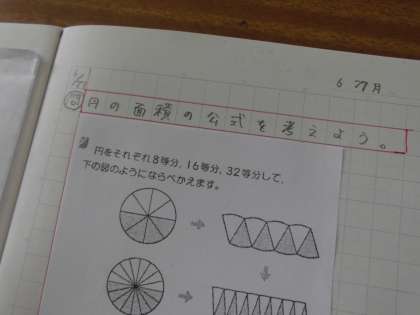 円の面積の公式を考えよう。
円をそれぞれ8等分、16等分、32等分して、
下の図のようにならべかえます。